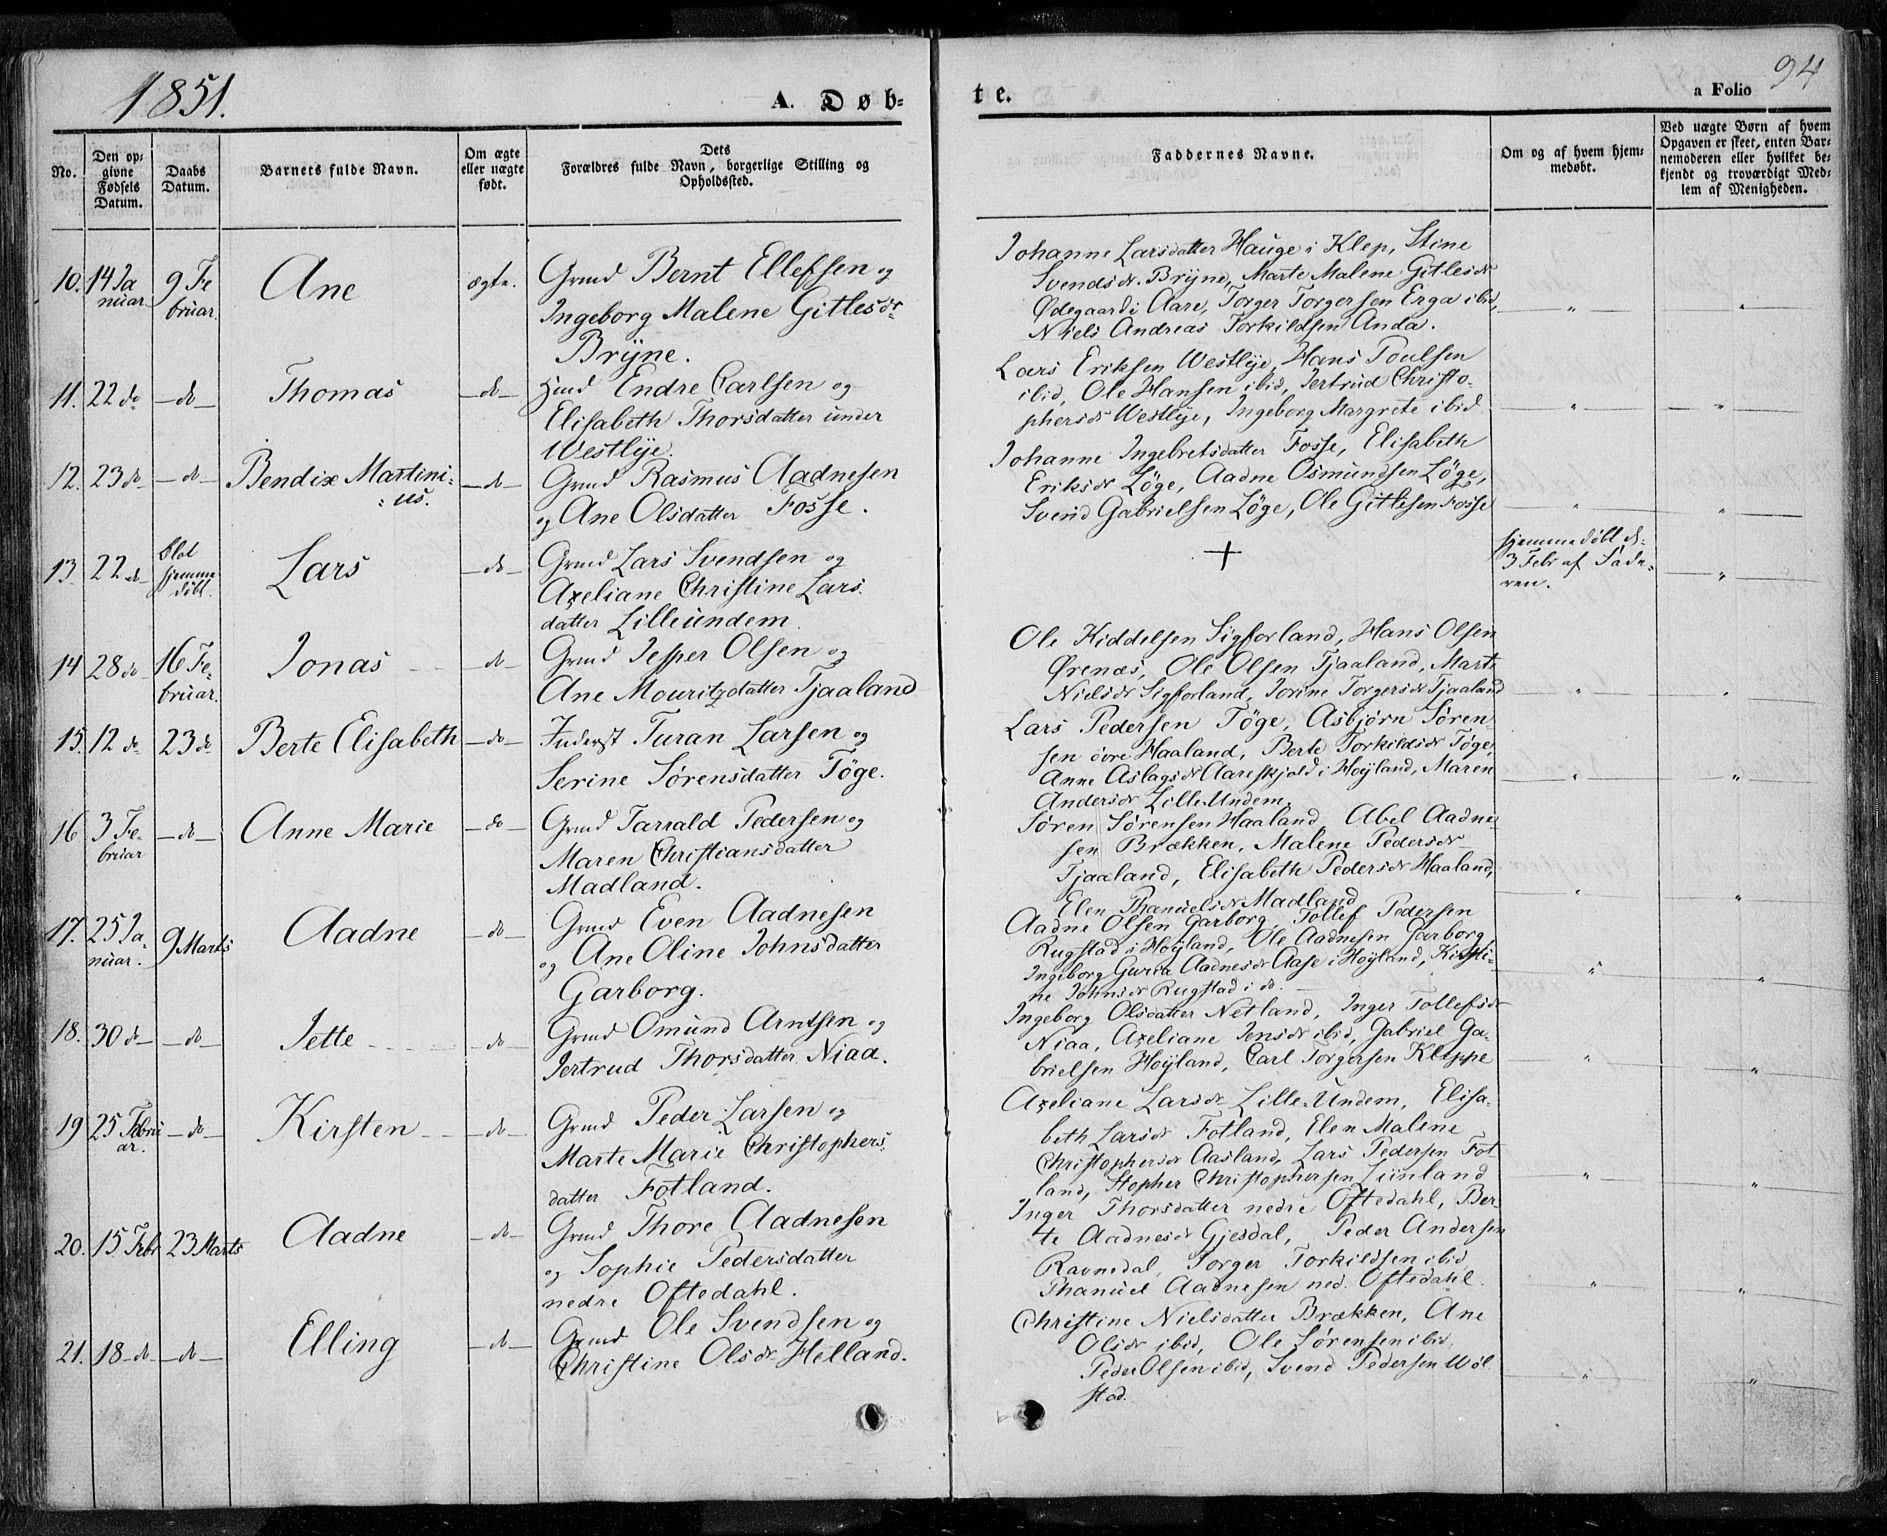 1851.
A. Døb-
te.
94
a Folio
No.
Den op-
givne
Fødsels
Datum.
Daabs
Datum.
Barnets fulde Navn.
Om ægte
eller uægte
født.
Dets
Forældres fulde Navn, borgerlige Stilling og
Opholdssted.
Faddernes Navne.
Om og af hvem hjem-
medøbt.
Ved uægte Børn af hvem
Opgaven er skeet, enten Bar-
nemoderen eller hvilket be-
kjendt og troværdigt Med-
lem af Menigheden.
10. 14 Ja
nuar
9 Fe
bruar.
Ane
ægte.
Grmd Bernt Ellefsen og
Ingeborg Malene Gitlesdr
Bryne.
Johanne Larsdatter Hauge i Klep, Stine
Svendsdr. Bryne, Marte Malene Gitlesdr
Ødegaard i Aare, Torger Torgersen Erga ibid,
Niels Andreas Torkildsen Anda.
" "
11. 22 do
-do-
Thomas
-do-
Hmd Endre Carlsen og
Elisabeth Thorsdatter under
Westlye.
Lars Eriksen Westlye, Hans Poulsen
ibid, Ole Hansen ibid, Jertrud Christo-
phersdr Westlye, Ingeborg Margrete ibid
" "
12. 23 do
-do-
Bendix Martini-
us.
-do-
Grmd Rasmus Aadnesen
og Ane Olsdatter Fosse.
Johanne Ingebretsdatter Fosse, Elisabeth
Eriksdr Løge, Aadne Osmundsen Løge,
Svend Gabrielsen Løge, Ole Gitlesen Fosse
" "
13. 22 do
blot
hjemme
døbt.
Lars
-do-
Grmd Lars Svendsen og
Axeliane Christine Lars
datter Lilleundem.
+
hjemmedøbt d.
3 Febr af Fade-
ren.
"
14 28 do
16 Fe-
bruar.
Jonas
-do-
Grmd Jesper Olsen og
Ane Mouritzdatter Tjaaland
Ole Kiddelsen Sigforland, Hans Olsen
Ørenæs, Ole Olsen Tjaaland, Marte
Nielsdr Sigforland, Jorine Torgersdr Tjaaland
" "
15. 12 do
23 do
Berte Elisabeth
-do-
Inderst Turan Larsen og
Serine Sørensdatter Töge.
Lars Pedersen Töge, Asbjørn Søren-
sen övre Haaland, Berte Torkildsdr Töge,
Anne Aslagsdr Aareskjold i Høyland, Maren
Andersdr Lille-Undem.
" "
16 3 Fe-
bruar
-do-
Anne Marie
-do-
Grmd Tarrald Pedersen og
Maren Christiansdatter
Madland.
Søren Sørensen Haaland, Abel Aadne-
sen Brækken, Malene Pedersdr
Tjaaland, Elisabeth Pedersdr Haaland,
Elen Thanuelsdr Madland
" "
17. 25 Ja-
nuar.
9 Marts
Aadne
-do-
Grmd Even Aadnesen
og Ane Oline Johnsdatter
Garborg.
Aadne Olsen Garborg, Tollef Pedersen
Rugstad i Høyland, Ole Aadnesen Garborg
Ingeborg Guria Aadnesdr Aase i Høyland, Kirsti-
ne Johnsdr Rugstad i do.
" "
18. 30 do
-do-
Jette
-do-
Grmd Omund Arntsen og
Jertrud Thorsdatter Niaa.
Ingeborg Olsdatter Netland, Inger Tollefsdr
Niaa, Axeliane Jensdr ibid, Gabriel Ga-
brielsen Høyland, Carl Torgersen Kleppe
" "
19 25 Febru
ar.
-do-
Kirsten
-do-
Grmd Peder Larsen og
Marte Marie Christophers-
datter Fotland.
Axeliane Larsdr Lille-Undem, Elisa-
beth Larsdr Fotland, Elen Malene
Christophersdr Aasland, Lars Pedersen Fot-
land, Stopher Christophersen Lunland
" "
20. 15 Febr
23 Marts
Aadne
-do-
Grmd Thore Aadnesen
og Sophie Pedersdatter
nedre Oftedahl.
Inger Thorsdatter nedre Oftedahl, Ber-
te Aadnesdr Gjesdal, Peder Andersen
Ravnedal, Torger Torkildsen ibid,
Thanuel Aadnesen ned. Oftedahl.
" "
21. 18 do
-do-
Elling
-do-
Grmd Ole Svendsen og
Christine Olsdr Helland.
Christine Nielsdatter Brækken, Ane
Olsdr ibid, Ole Sørensen ibid,
Peder Olsen ibid, Svend Pedersen Wøl
stad.
" "